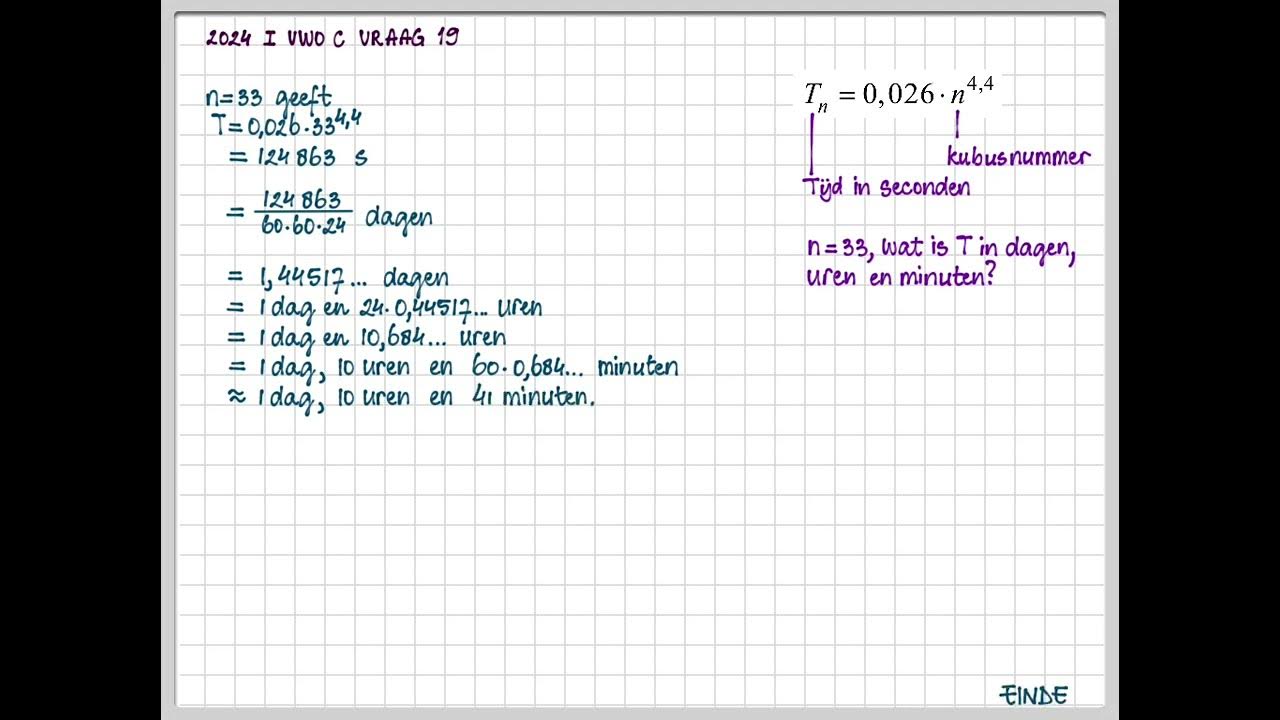 2024 I VWO C VRAAG 19
n=33 geeft
T=0,026·33^4,4
= 124 863 s
= 124 863 / 60·60·24 dagen
= 1,44517... dagen
= 1 dag en 24·0,44517... uren
= 1 dag en 10,684... uren
= 1 dag, 10 uren en 60·0,684... minuten
≈ 1 dag, 10 uren en 41 minuten.
Tₙ = 0,026·n^4,4
kubusnummer
Tijd in seconden
n=33, wat is T in dagen,
uren en minuten?
EINDE